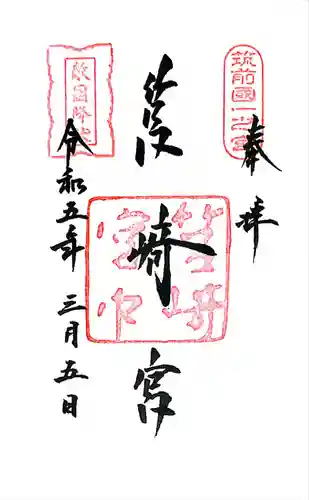 奉拝
筑前國一之宮
筥崎宮
筥崎宮印
敵國降伏
令和五年 三月五日